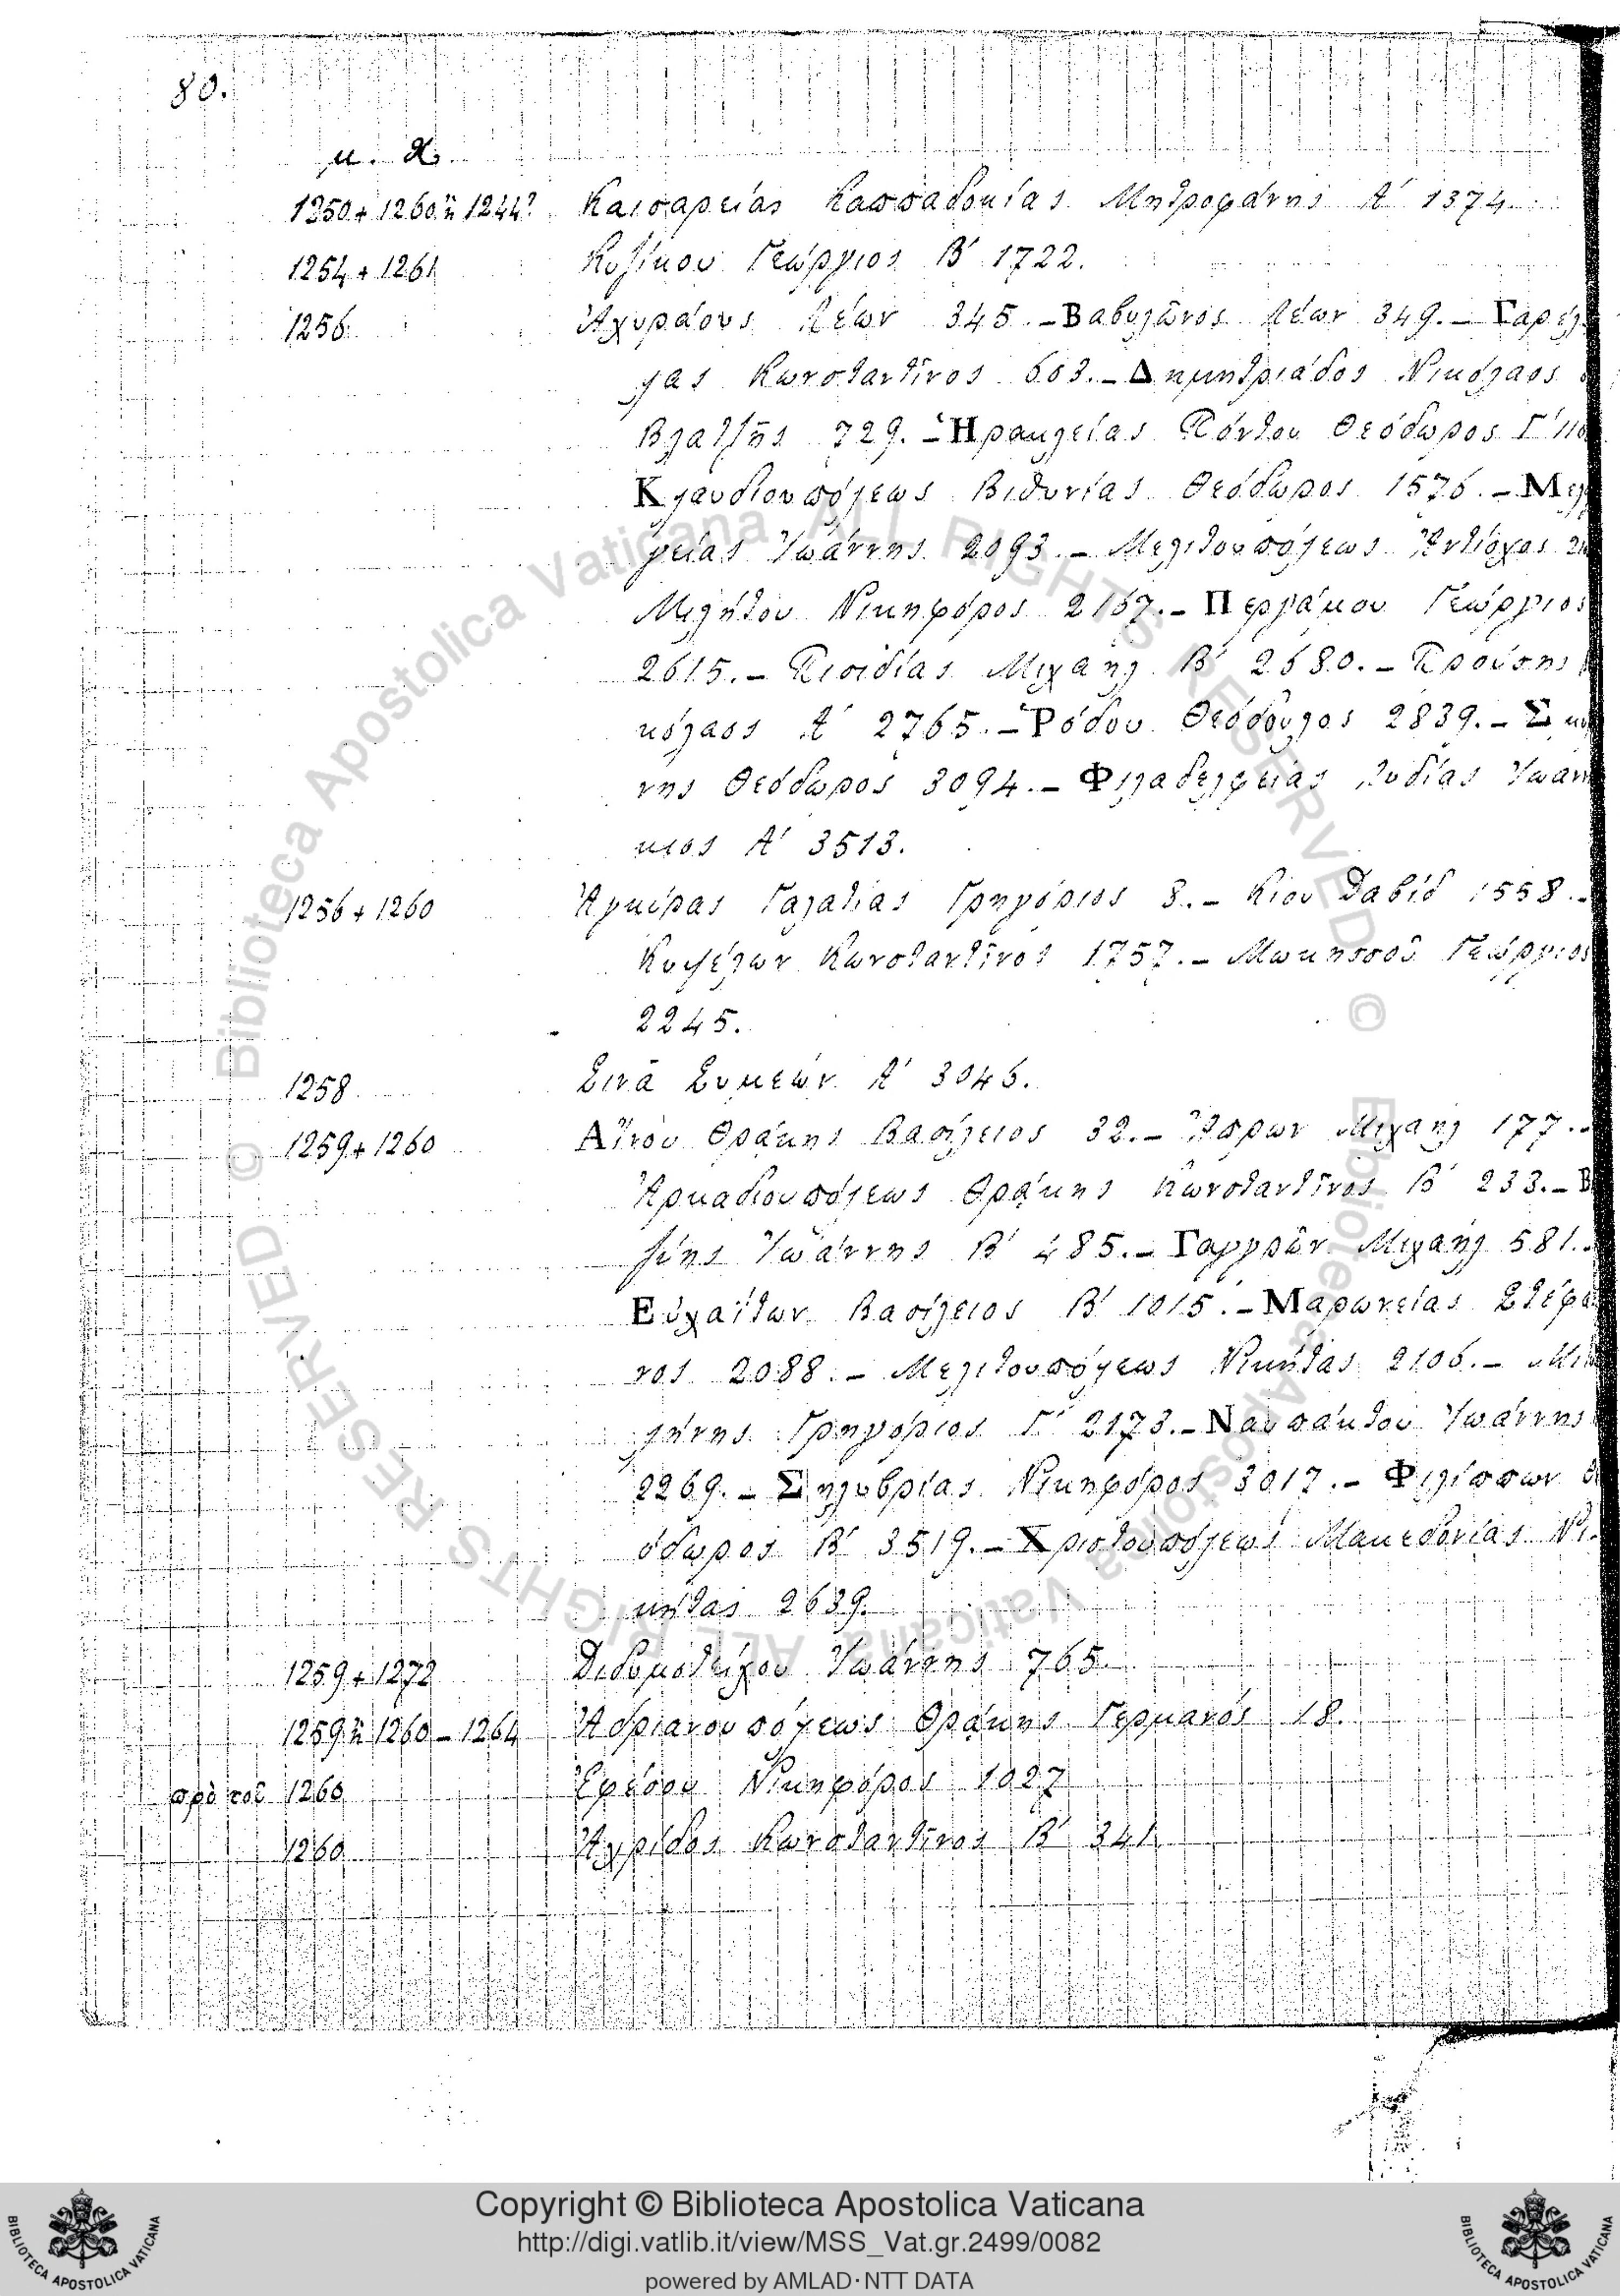 80.
μ. Χ.
1250+1260 ἢ 1244? Καισαρείας Καππαδοκίας Μητροφάνης Α΄ 1374.
1254+1261 Κυζίκου Γεώργιος Β΄ 1722.
1256 Ἀχυράους Λέων 345.-Βαβυλῶνος Λέων 349.-Γαρέλ
λας Κωνσταντῖνος 603.-Δημητριάδος Νικόλαος
Βλατζῆς 729.-Ἡρακλείας Πόντου Θεόδωρος Γ΄
Κλαυδιουπόλεως Βιθυνίας Θεόδωρος 1576.-Μελ
γείας Ἰωάννης 2093.-Μελιτουπόλεως Ἀντίοχος
Μιλήτου Νικηφόρος 2167.-Περγάμου Γεώργιος
2615.-Πισιδίας Μιχαὴλ Β΄ 2680.-Προύσης
κόλαος Α΄ 2765.-Ῥόδου Θεόδουλος 2839.-Σμ
νης Θεόδωρος 3094.-Φιλαδελφείας Λυδίας Ἰωαν
κιος Α΄ 3513.
1256+1260 Ἀγκύρας Γαλατίας Γρηγόριος 8.-Κίου Δαβίδ 1558.-
Κυψέλων Κωνσταντῖνος 1757.-Μωκησσοῦ Γεώργιος
2245.
1258 Σινᾶ Συμεών Α΄ 3046.
1259+1260 Αἴνου Θρᾴκης Βασίλειος 32.-Ἄπρων Μιχαὴλ 177.-
Ἀρκαδιουπόλεως Θρᾴκης Κωνσταντῖνος Β΄ 233.-Β
ζύης Ἰωάννης Β΄ 485.-Γαγγρῶν Μιχαήλ 581.-
Εὐχαΐτων Βασίλειος Β΄ 1015.-Μαρωνείας Στέφα
νος 2088.-Μελιτουπόλεως Νικήτας 2106.-Μι
λήνης Γρηγόριος Γ΄ 2173.-Ναυπάκτου Ἰωάννης
2269.-Σηλυβρίας Νικηφόρος 3017.-Φιλίππων
όδωρος Β΄ 3519.-Χριστουπόλεως Μακεδονίας Νι-
κήτας 2639.
1259+1272 Διδυμοτείχου Ἰωάννης 765.
1259 ἢ 1260-1264 Ἀδριανουπόλεως Θρᾴκης Γερμανός 18.
πρὸ τοῦ 1260 Ἐφέσου Νικηφόρος 1027
1260 Ἀχρίδος Κωνσταντῖνος Β΄ 341
© Biblioteca Apostolica Vaticana ALL RIGHTS RESERVED © Biblioteca Apostolica Vaticana ALL RIGHTS RESERVED
Copyright © Biblioteca Apostolica Vaticana
http://digi.vatlib.it/view/MSS_Vat.gr.2499/0082
powered by AMLAD·NTT DATA
BIBLIOTECA APOSTOLICA VATICANA
BIBLIOTECA APOSTOLICA VATICANA